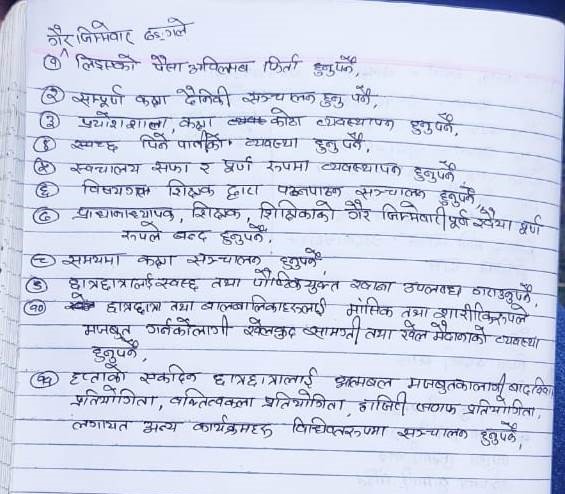 गैर जिम्मेवार ढङ्गले
१ लिइएको पैसा अविलम्ब फिर्ता हुनुपर्ने,
२ सम्पूर्ण कक्षा दैनिकी सञ्चालन हुनु पर्ने,
३ प्रयोगशाला, कक्षा कोठा व्यवस्थापन हुनुपर्ने,
४ स्वच्छ पिने पानीको व्यवस्था हुनु पर्ने,
५ स्वचालय सफा र पूर्ण रूपमा व्यवस्थापन हुनुपर्ने,
६ विषयगत शिक्षक द्वारा पठनपाठन सञ्चालन हुनुपर्ने,
७ प्राधानाध्यापक, शिक्षक, शिक्षिकाको गैर जिम्मेवारीपूर्ण रवैया पूर्ण
रूपले बन्द हुनुपर्ने,
८ समयमा कक्षा सञ्चालन हुनुपर्ने,
९ छात्रछात्रालाई स्वच्छ तथा पौष्टिकयुक्त खाना उपलब्ध गराउनुपर्ने,
१० छात्रछात्रा तथा बालबालिकाहरूलाई मानसिक तथा शारीरिकरूपले
मजबुत गर्नकोलागी खेलकुद सामाग्री तथा खेल मैदानको व्यवस्था
हुनुपर्ने,
११ हप्ताको एकदिन छात्रछात्रालाई आत्मबल मजबुतकालागी
प्रतियोगिता, वक्तित्वकला प्रतियोगिता, हाजिरी जवाफ प्रतियोगिता,
लगायत अन्य कार्यक्रमहरू विधिवतरूपमा सञ्चालन हुनुपर्ने,